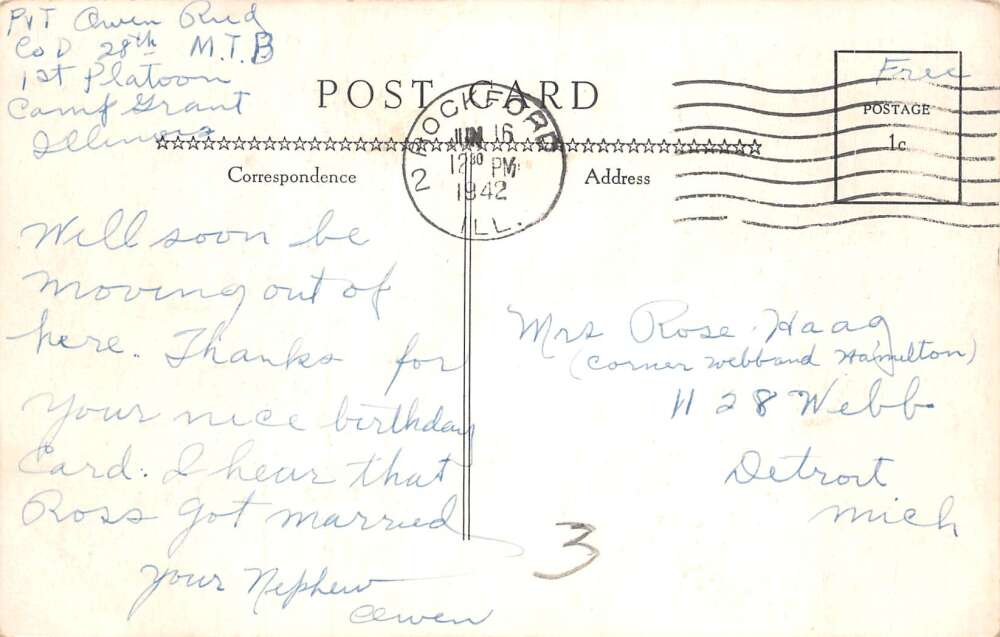 Pvt Owen Reed
Co D 28th M.T.B
1st Platoon
Camp Grant
Illinois
POST CARD
Correspondence
Address
ROCKFORD
JUN 16
12 30 PM
1942
2 ILL.
Free
POSTAGE
1c
Will soon be
moving out of
here. Thanks for
your nice birthday
Card. I hear that
Ross got married
your Nephew
Owen
Mrs Rose Haag
(corner webb and Hamilton)
1128 Webb
Detroit
Mich
3